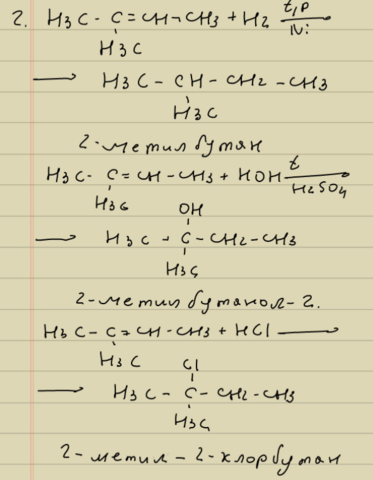 2. H3C- C=CH-CH3 + H2 t,p
Ni
H3C
⟶ H3C - CH - CH2 - CH3
H3C
2-метил бутан
H3C- C=CH-CH3 + HOH t
H2SO4
H3C
OH
⟶ H3C - C - CH2-CH3
H3C
2-метил бутанол-2.
H3C-C=CH-CH3 + HCl ⟶
H3C Cl
⟶ H3C - C - CH2-CH3
H3C
2-метил-2-хлорбутан